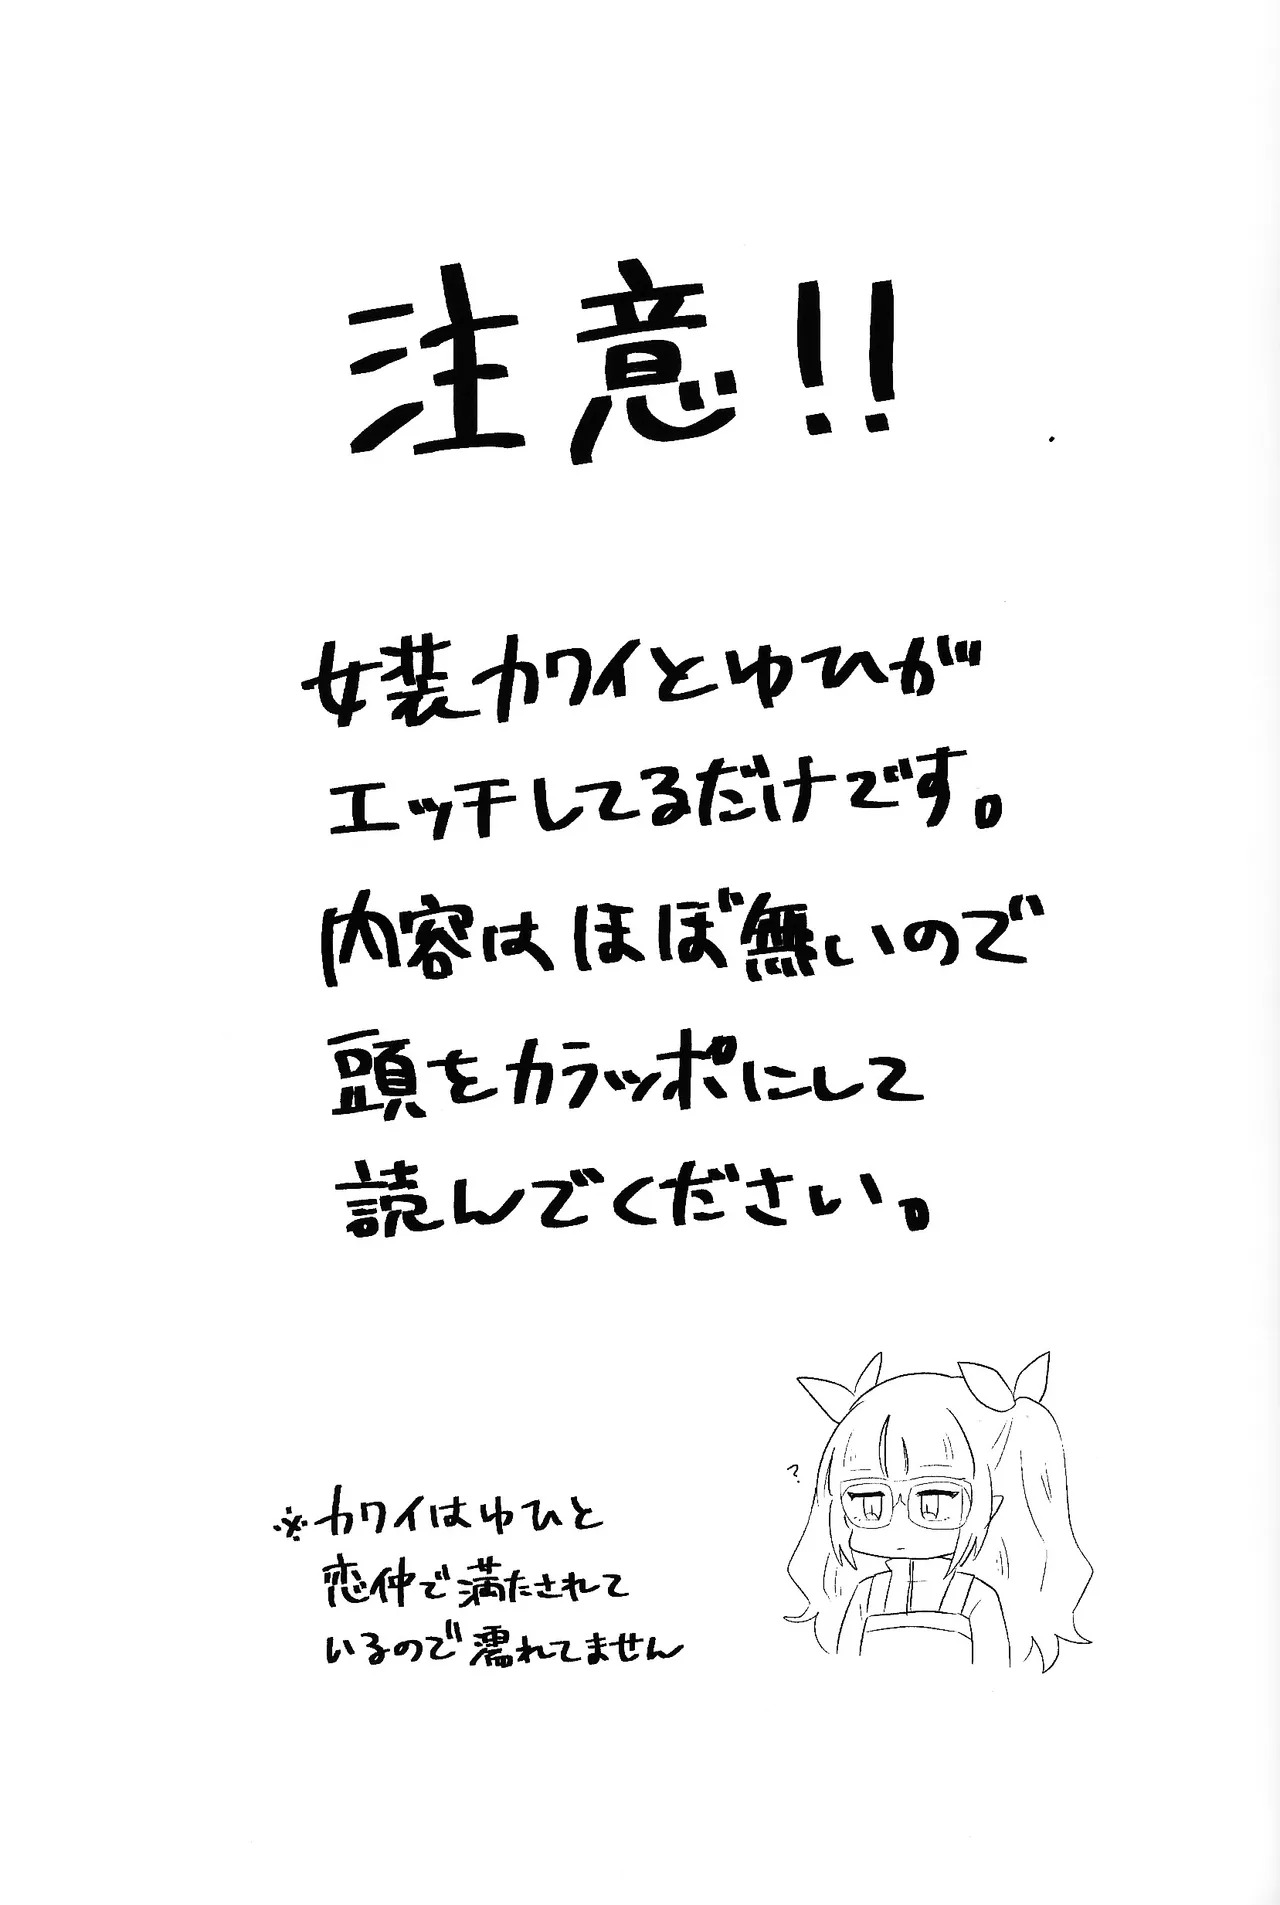 注意!!
女装カワイとゆひが
エッチしてるだけです。
内容はほぼ無いので
頭をカラッポにして
読んでください。
?
※カワイはゆひと
恋仲で満たされて
いるので濡れてません